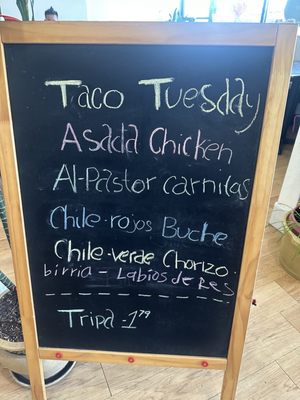 Taco Tuesday
Asada Chicken
Al-Pastor carnitas
Chile-rojos Buche
Chile-verde Chorizo.
birria - Labios de Res
Tripa - 1.79